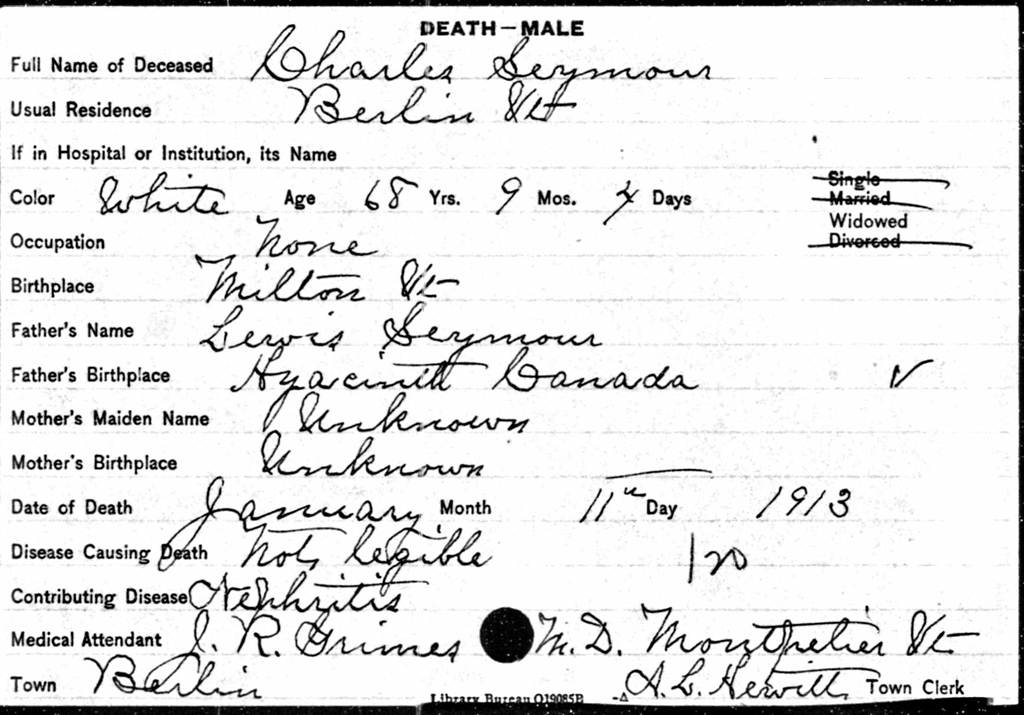 DEATH—MALE
Full Name of Deceased Charles Seymour
Usual Residence Berlin Vt
If in Hospital or Institution, its Name
Single
Color White Age 68 Yrs. 9 Mos. 4 Days Married
Widowed
Occupation None Divorced
Birthplace Milton Vt
Father's Name Lewis Seymour
Father's Birthplace Hyacinth Canada ✓
Mother's Maiden Name Unknown
Mother's Birthplace Unknown
Date of Death January Month 11th Day 1913
Disease Causing Death Not legible 120
Contributing Disease Nephritis
Medical Attendant J. R. Grimes M. D. Montpelier Vt
Town Berlin A. L. Hewitt Town Clerk
Library Bureau O19085B